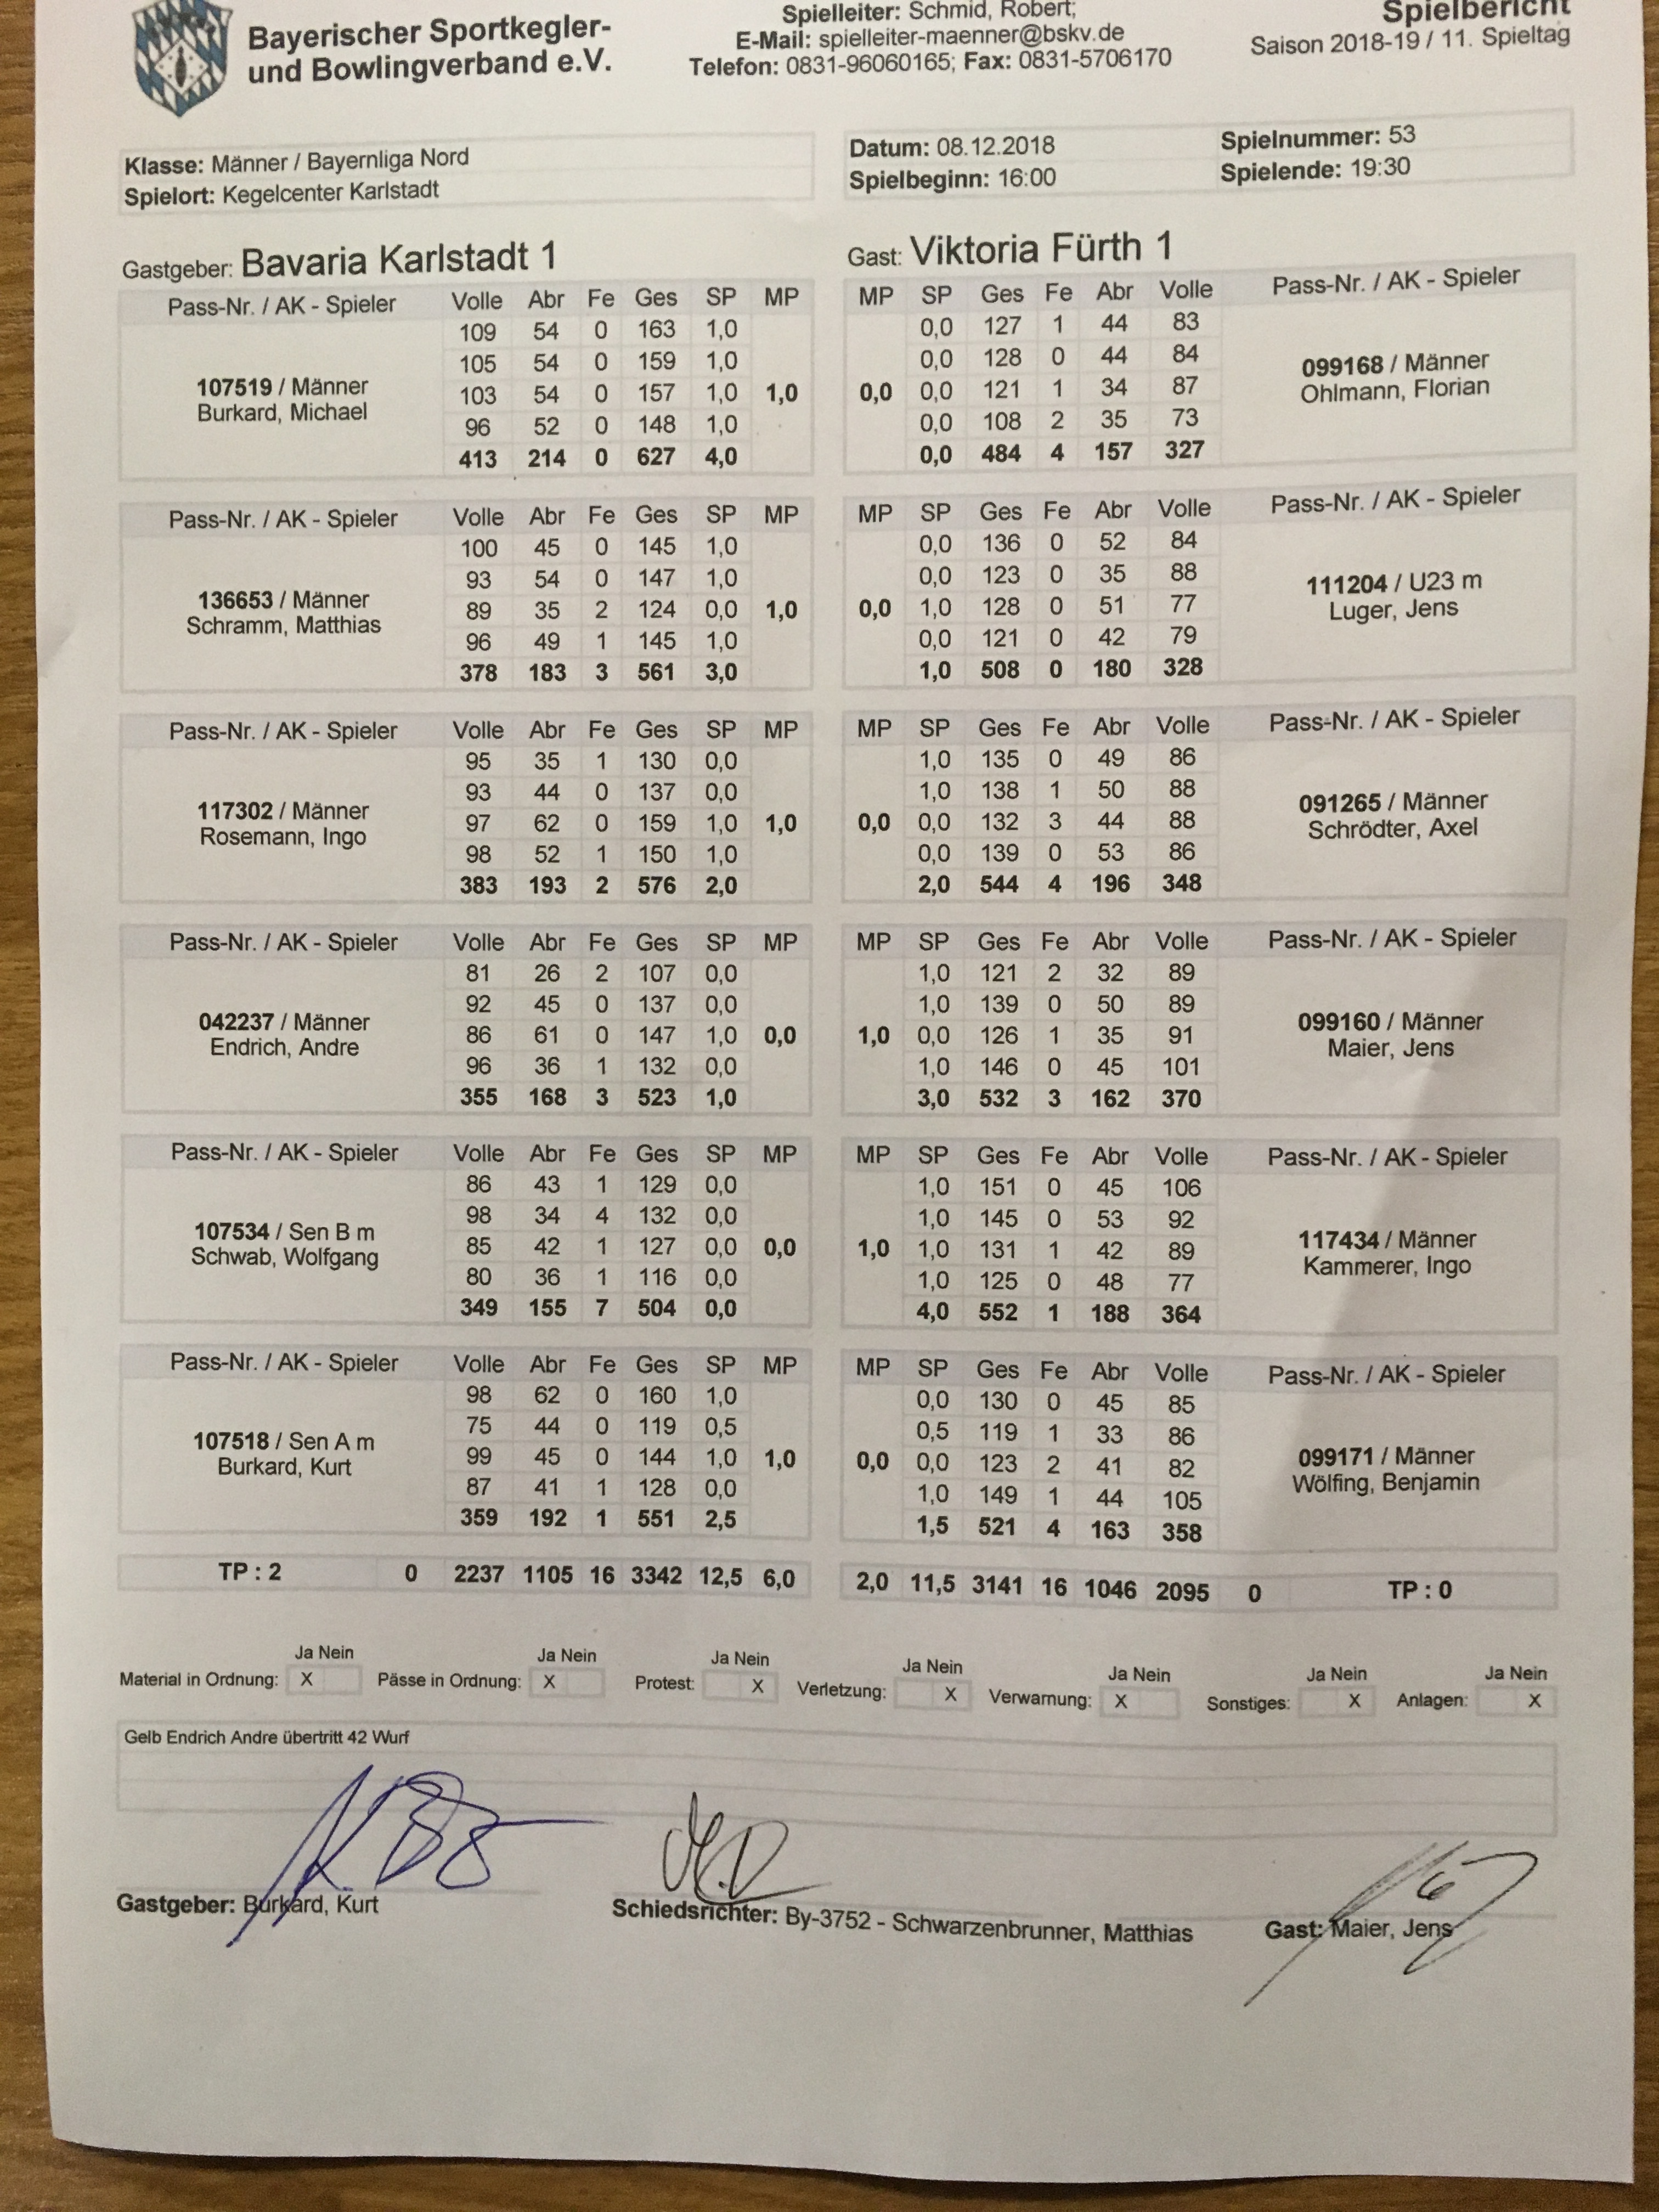 Bayerischer Sportkegler- Spielleiter: Schmid, Robert; Spielbericht
und Bowlingverband e.V. E-Mail: spielleiter-maenner@bskv.de Saison 2018-19 / 11. Spieltag
Telefon: 0831-96060165; Fax: 0831-5706170
Klasse: Männer / Bayernliga Nord Datum: 08.12.2018 Spielnummer: 53
Spielort: Kegelcenter Karlstadt Spielbeginn: 16:00 Spielende: 19:30
Gastgeber: Bavaria Karlstadt 1 Gast: Viktoria Fürth 1
Pass-Nr. / AK - Spieler Volle Abr Fe Ges SP MP MP SP Ges Fe Abr Volle Pass-Nr. / AK - Spieler
109 54 0 163 1,0 0,0 127 1 44 83
105 54 0 159 1,0 0,0 128 0 44 84
107519 / Männer 103 54 0 157 1,0 1,0 0,0 0,0 121 1 34 87 099168 / Männer
Burkard, Michael 96 52 0 148 1,0 0,0 108 2 35 73 Ohlmann, Florian
413 214 0 627 4,0 0,0 484 4 157 327
Pass-Nr. / AK - Spieler Volle Abr Fe Ges SP MP MP SP Ges Fe Abr Volle Pass-Nr. / AK - Spieler
100 45 0 145 1,0 0,0 136 0 52 84
93 54 0 147 1,0 0,0 123 0 35 88
136653 / Männer 89 35 2 124 0,0 1,0 0,0 1,0 128 0 51 77 111204 / U23 m
Schramm, Matthias 96 49 1 145 1,0 0,0 121 0 42 79 Luger, Jens
378 183 3 561 3,0 1,0 508 0 180 328
Pass-Nr. / AK - Spieler Volle Abr Fe Ges SP MP MP SP Ges Fe Abr Volle Pass-Nr. / AK - Spieler
95 35 1 130 0,0 1,0 135 0 49 86
93 44 0 137 0,0 1,0 138 1 50 88
117302 / Männer 97 62 0 159 1,0 1,0 0,0 0,0 132 3 44 88 091265 / Männer
Rosemann, Ingo 98 52 1 150 1,0 0,0 139 0 53 86 Schrödter, Axel
383 193 2 576 2,0 2,0 544 4 196 348
Pass-Nr. / AK - Spieler Volle Abr Fe Ges SP MP MP SP Ges Fe Abr Volle Pass-Nr. / AK - Spieler
81 26 2 107 0,0 1,0 121 2 32 89
92 45 0 137 0,0 1,0 139 0 50 89
042237 / Männer 86 61 0 147 1,0 0,0 1,0 0,0 126 1 35 91 099160 / Männer
Endrich, Andre 96 36 1 132 0,0 1,0 146 0 45 101 Maier, Jens
355 168 3 523 1,0 3,0 532 3 162 370
Pass-Nr. / AK - Spieler Volle Abr Fe Ges SP MP MP SP Ges Fe Abr Volle Pass-Nr. / AK - Spieler
86 43 1 129 0,0 1,0 151 0 45 106
98 34 4 132 0,0 1,0 145 0 53 92
107534 / Sen B m 85 42 1 127 0,0 0,0 1,0 1,0 131 1 42 89 117434 / Männer
Schwab, Wolfgang 80 36 1 116 0,0 1,0 125 0 48 77 Kammerer, Ingo
349 155 7 504 0,0 4,0 552 1 188 364
Pass-Nr. / AK - Spieler Volle Abr Fe Ges SP MP MP SP Ges Fe Abr Volle Pass-Nr. / AK - Spieler
98 62 0 160 1,0 0,0 130 0 45 85
75 44 0 119 0,5 0,5 119 1 33 86
107518 / Sen A m 99 45 0 144 1,0 1,0 0,0 0,0 123 2 41 82 099171 / Männer
Burkard, Kurt 87 41 1 128 0,0 1,0 149 1 44 105 Wölfing, Benjamin
359 192 1 551 2,5 1,5 521 4 163 358
TP : 2 0 2237 1105 16 3342 12,5 6,0 2,0 11,5 3141 16 1046 2095 0 TP : 0
Ja Nein Ja Nein Ja Nein Ja Nein Ja Nein Ja Nein Ja Nein
Material in Ordnung: X Pässe in Ordnung: X Protest: X Verletzung: X Verwarnung: X Sonstiges: X Anlagen: X
Gelb Endrich Andre übertritt 42 Wurf
Gastgeber: Burkard, Kurt Schiedsrichter: By-3752 - Schwarzenbrunner, Matthias Gast: Maier, Jens